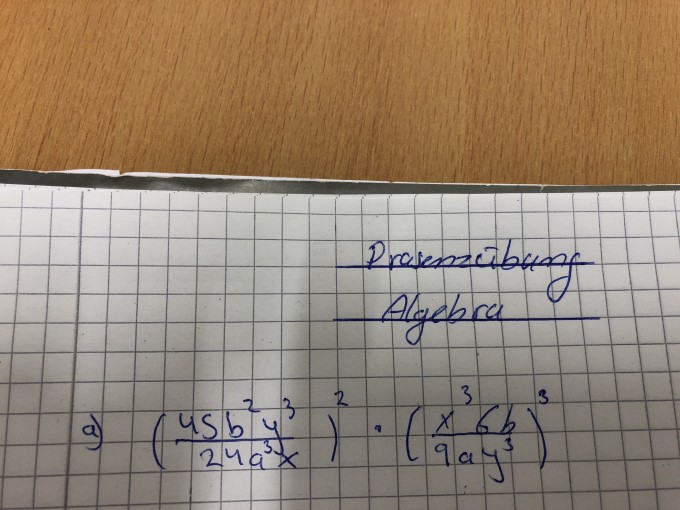 Präsenzübung
Algebra
a) (45b²y³ / 24a³x)² · (x³6b / 9ay³)³